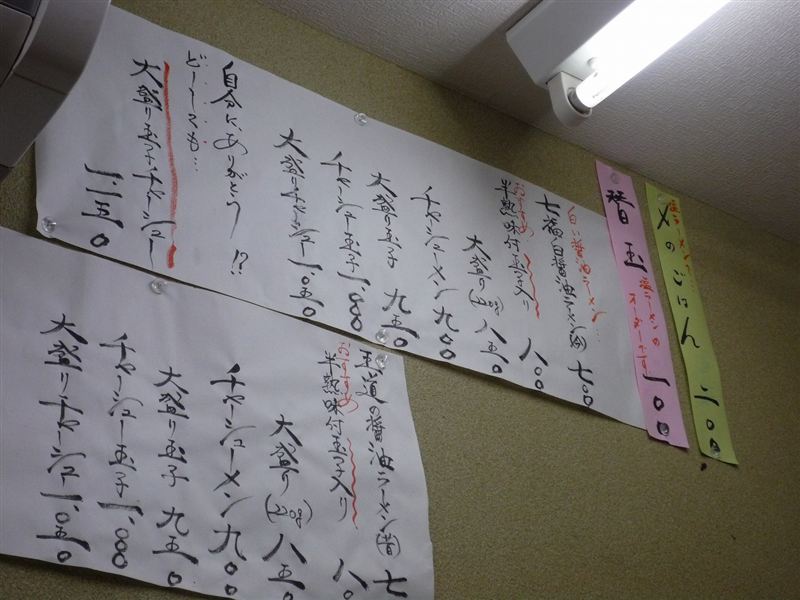 〆のごはん 二〇〇
塩ラーメンで…
替玉 一〇〇
塩ラーメンの
オーダーです
白い醤油ラーメン…
七福白醤油ラーメン 七〇〇
おすすめ
半熟味付玉子入り 八〇〇
大盛り(220g) 八五〇
チャーシューメン 九〇〇
大盛り玉子 九五〇
チャーシュー玉子 一、〇〇〇
大盛りチャーシュー 一、〇五〇
自分に、ありがとう!?
ど〜しても…
大盛り玉子チャーシュー 一、一五〇
王道の醤油ラーメン(普) 七
おすすめ
半熟味付玉子入り 八〇
大盛り(220g) 八五〇
チャーシューメン 九〇〇
大盛り玉子 九五〇
チャーシュー玉子 一、〇〇〇
大盛りチャーシュー 一、〇五〇